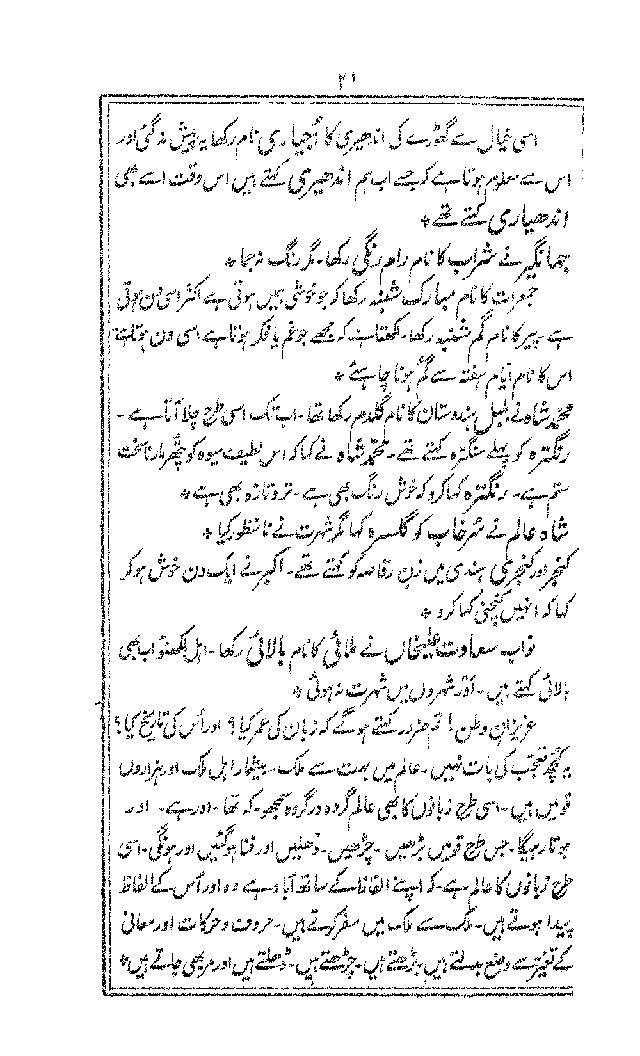 ۲۱
اسی خیال سے گھوڑے کی اندھیری کا اُجیاری نام رکھا یہ پیش نہ گئی اور
اس سے معلوم ہوتا ہے کہ جسے اب ہم اندھیری کہتے ہیں اس وقت اسے بھی
اندھیاری کہتے تھے *
جہانگیر نے شراب کا نام رام رنگی رکھا۔ مگر رنگ نہ جما *
جمعرات کا نام مبارک شنبہ رکھا کہ جو خوشی ہمیں ہوتی ہے اکثر اسی دن ہوتی
ہے پیر کا نام گم شنبہ رکھا۔ لکھتا ہے کہ مجھے جو غم یا فکر ہوتا ہے اسی دن ہوتا ہے
اس کا نام ایام ہفتہ سے گم ہونا چاہئے *
محمد شاہ نے بلبل ہندوستان کا نام گلدم رکھا تھا۔ اب تک اسی طرح چلا آتا ہے۔
رنگترہ کو پہلے سنگترہ کہتے تھے۔ محمد شاہ نے کہا کہ اس لطیف میوہ کو پتھر مارنا سخت
ستم ہے۔ رنگترہ کہا کرو کہ خوش رنگ بھی ہے۔ تر و تازہ بھی ہے *
شاہ عالم نے سُرخاب کو گلسرہ کہا مگر شہرت نے نامنظور کیا *
کنچر اور کنچری ہندی میں زنِ رقاصہ کو کہتے تھے۔ اکبر نے ایک دن خوش ہو کر
کہا کہ انہیں کنچنی کہا کرو *
نواب سعادت علیخاں نے ملائی کا نام بالائی رکھا۔ اہل لکھنؤ اب بھی
بالائی کہتے ہیں۔ اَور شہروں میں شہرت نہ ہوئی *
عزیزانِ وطن! تم ضرور کہتے ہو گے کہ زبان کی عمر کیا؟ اور اُس کی تاریخ کیا؟
یہ کچھ تعجب کی بات نہیں۔ عالم میں بہت سے ملک۔ بیشمار اہل ملک اور ہزاروں
قومیں ہیں۔ اسی طرح زبانوں کا بھی عالم گروہ در گروہ سمجھو۔ کہ تھا۔ اور ہے۔ اور
ہوتا رہیگا۔ جس طرح قومیں بڑھیں۔ چڑھیں۔ ڈھلیں اور فنا ہو گئیں اور ہونگی۔ اسی
طرح زبانوں کا عالم ہے۔ کہ اپنے الفاظ کے ساتھ آباد ہے وہ اور اُس کے الفاظ
پیدا ہوتے ہیں۔ ملک سے ملک میں سفر کرتے ہیں۔ حروف و حرکات اور معانی
کے تغیر سے وضع بدلتے ہیں بڑھتے ہیں۔ چڑھتے ہیں۔ ڈھلتے ہیں اور مر بھی جاتے ہیں *